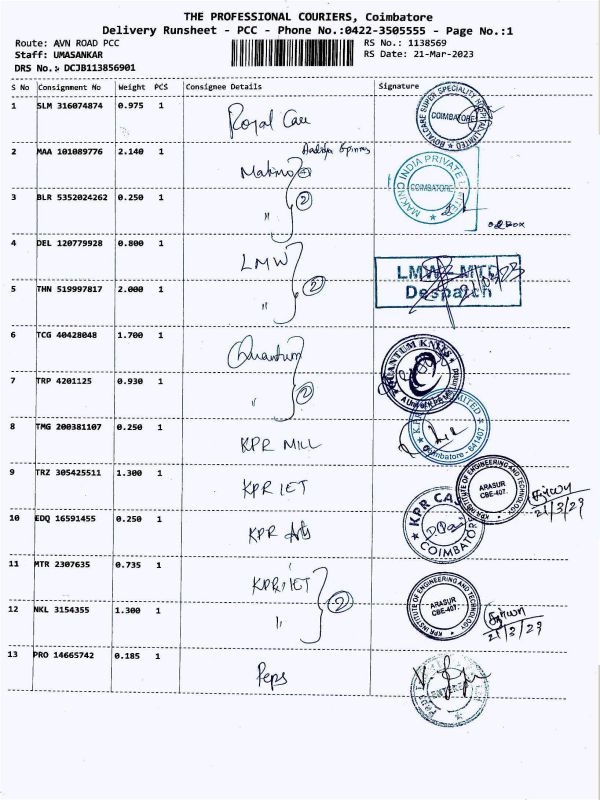 THE PROFESSIONAL COURIERS, Coimbatore
Delivery Runsheet - PCC - Phone No.:0422-3505555 - Page No.:1
Route: AVN ROAD PCC
RS No.: 1138569
Staff: UMASANKAR
RS Date: 21-Mar-2023
DRS No.: DCJB113856901
S No Consignment No Weight PCS Consignee Details Signature
1 SLM 316074874 0.975 1 Royal Care
ROYALCARE SUPER SPECIALITY HOSPITAL LIMITED COIMBATORE
2 MAA 101089776 2.140 1 Makino
MAKINO INDIA PRIVATE LIMITED COIMBATORE
3 BLR 5352024262 0.250 1 " 2
4 DEL 120779928 0.800 1 LMW
LMW - MTD
Despatch
21/03/23
5 THN 519997817 2.000 1 " 2
6 TCG 40428048 1.700 1 Quantum
QUANTUM KNITS
7 TRP 4201125 0.930 1 " 2
8 TMG 200381107 0.250 1 KPR MILL
Coimbatore - 641407
9 TRZ 305425511 1.300 1 KPR IET
KPR INSTITUTE OF ENGINEERING AND TECHNOLOGY
ARASUR
CBE-407.
21/3/23
10 EDQ 16591455 0.250 1 KPR Arts
KPR CAS
COIMBATORE
11 MTR 2307635 0.735 1 KPR IET
KPR INSTITUTE OF ENGINEERING AND TECHNOLOGY
ARASUR
CBE-407.
12 NKL 3154355 1.300 1 " 2
21/3/23
13 PRO 14665742 0.185 1 Peps